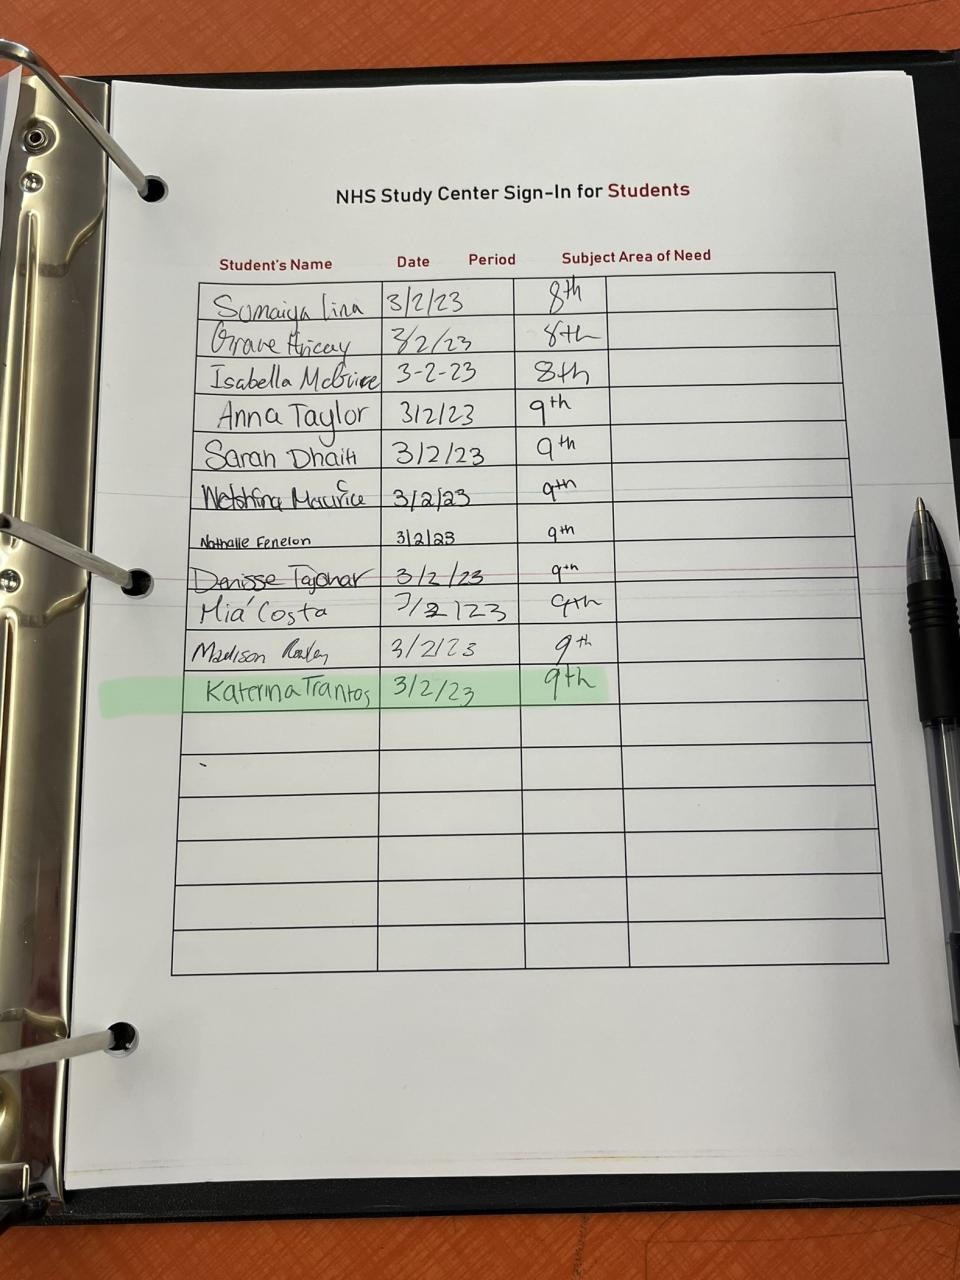 NHS Study Center Sign-In for Students
Student's Name Date Period Subject Area of Need
Sumaiya Lira 3/2/23 8th
3/2/23 8th
Isabella McGuire 3-2-23 8th
Anna Taylor 3/2/23 9th
Sarah Dhaiti 3/2/23 9th
Maurice 3/2/23 9th
Nathalie Fenelon 3/2/23 9th
Denisse 3/2/23 9th
Mia Costa 3/2/23 9th
Madison 3/2/23 9th
Katerina Trantos 3/2/23 9th